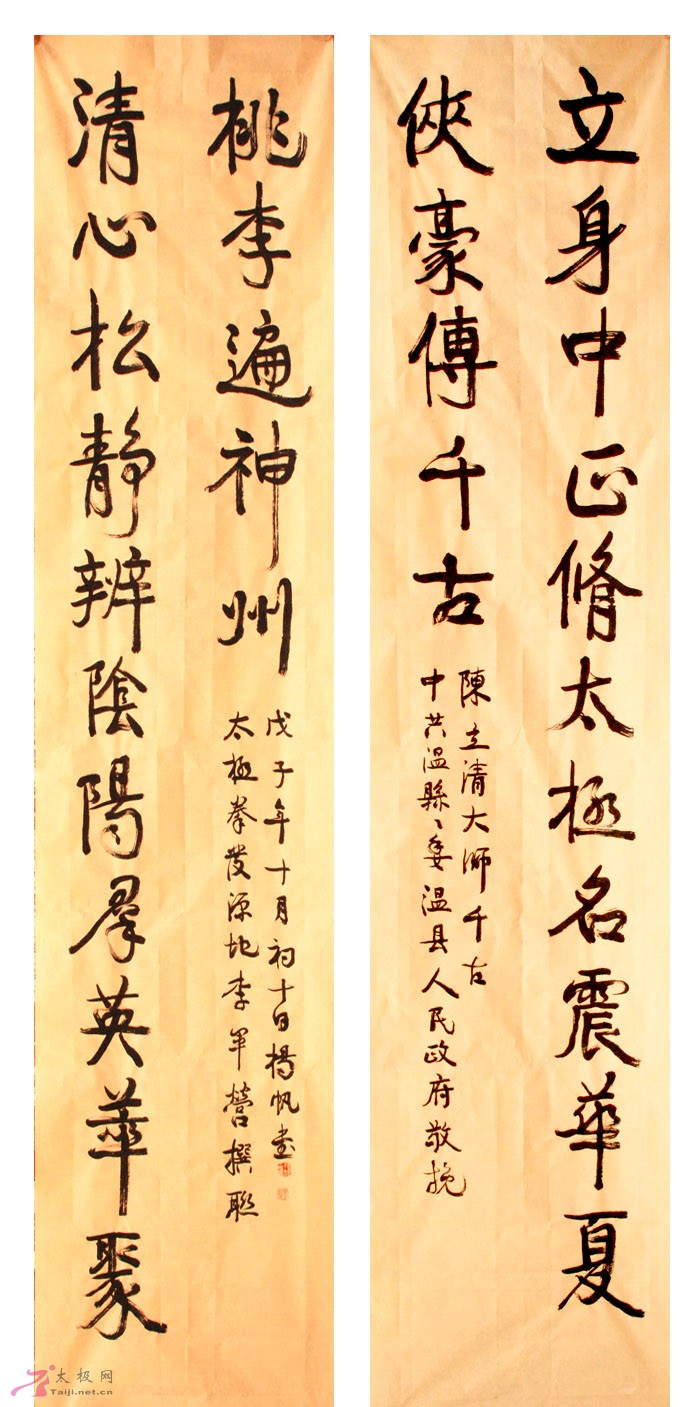 立身中正脩太極名震華夏
俠豪傳千古
陳立清大師千古
中共温縣〻委温县人民政府敬挽
清心松靜辨陰陽羣英華聚
桃李遍神州
戊子年十月初十日楊帆書
太極拳發源地李軍營撰聯
太极网
Taiji.net.cn